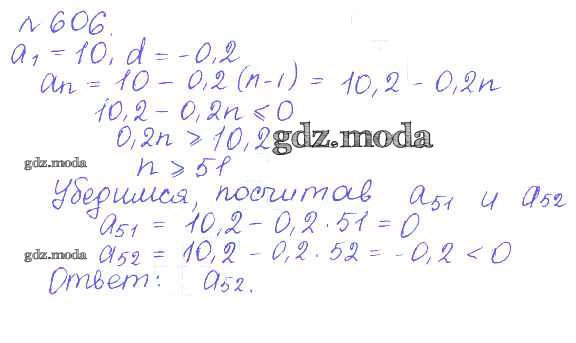 № 606.
a₁ = 10, d = -0,2
aₙ = 10 - 0,2 (n-1) = 10,2 - 0,2n
10,2 - 0,2n ⩽ 0
0,2n ⩾ 10,2 gdz.moda
gdz.moda n ⩾ 51
Убедимся, посчитав a₅₁ и a₅₂
a₅₁ = 10,2 - 0,2 · 51 = 0
gdz.moda a₅₂ = 10,2 - 0,2 · 52 = -0,2 < 0
Ответ: a₅₂.